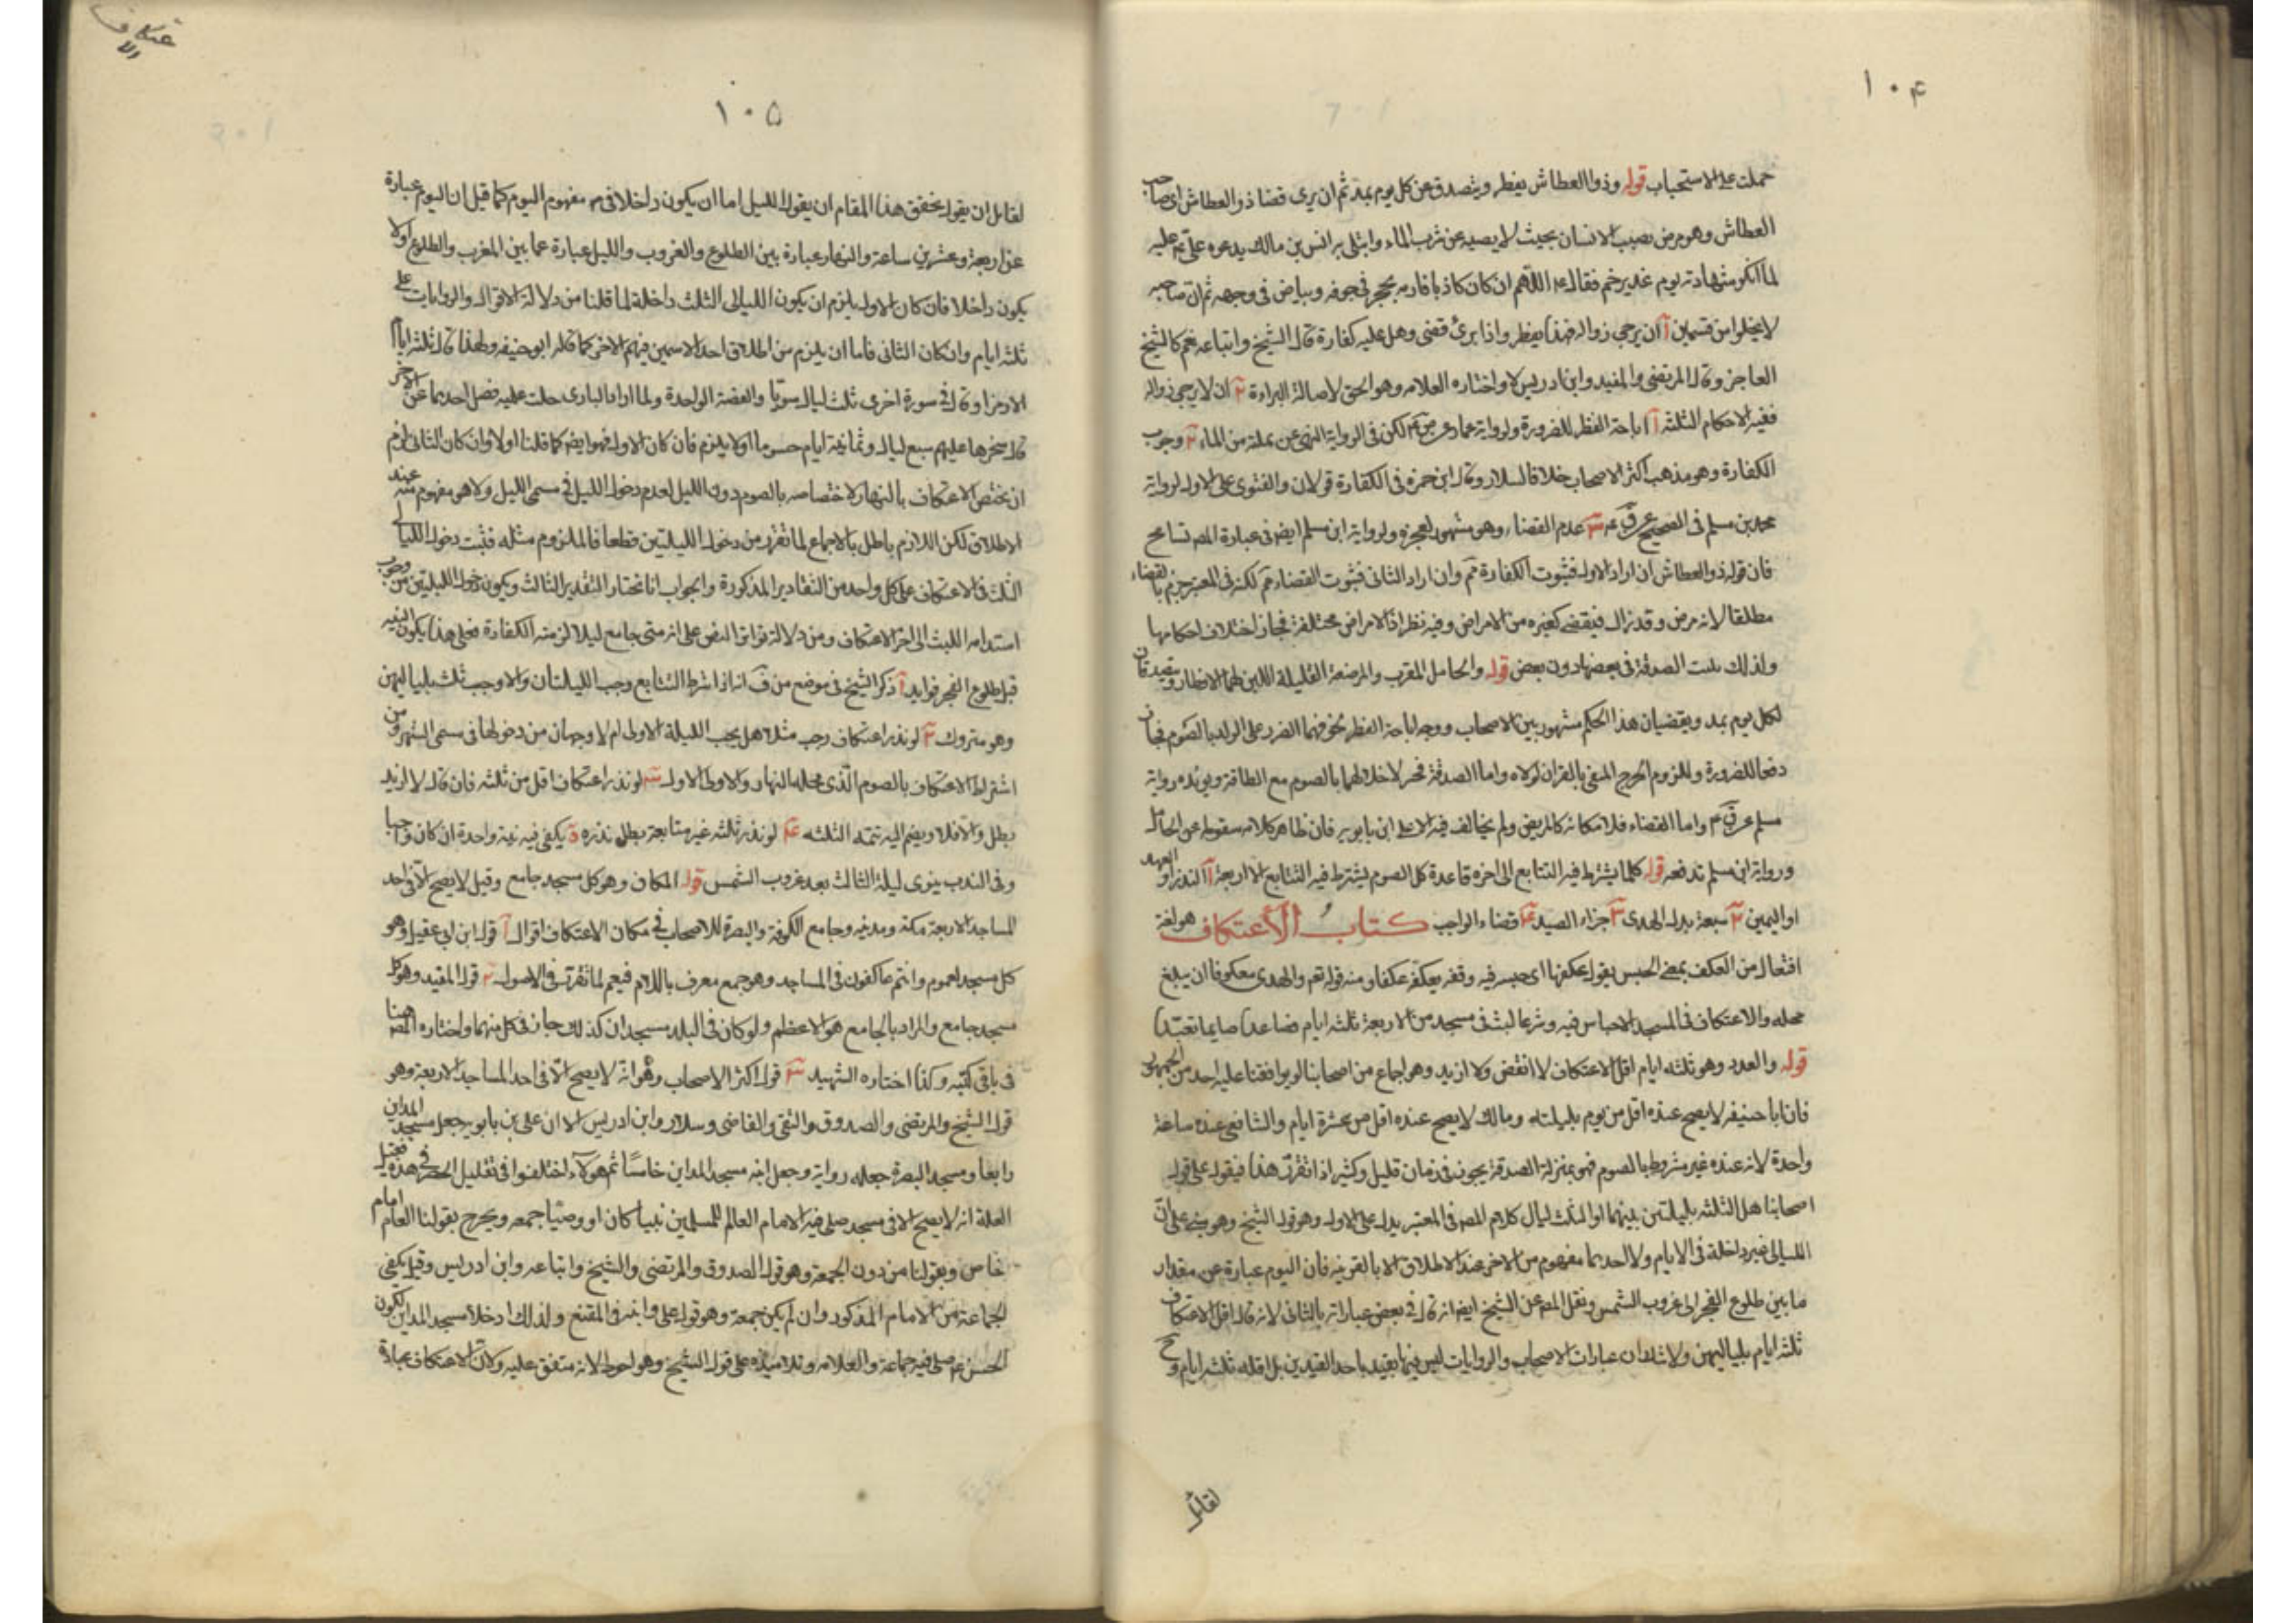 ١٠۴
حملت على الاستحباب قوله وذو العطاش يفطر ويتصدق عن كل يوم بمد ثم ان برى قضا ذو العطاش اى صاحب
العطاش وهو مرض يصيب الانسان بحيث لا يصبر عن شرب الماء وابتلى به انس بن مالك بدعوة على ع عليه
لما انكر شهادته يوم غدير خم فقال ع اللهم ان كان كاذبا فارمه بحجر فى جوفه وبياض فى وجهه ثم ان صاحبه
لا يخلوا من قسمين آ ان يرجى زواله فهذا يفطر واذا برئ قضى وهل عليه كفارة قال الشيخ واتباعه نعم كالشيخ
العاجز وقال المرتضى والمفيد وابن ادريس لا واختاره العلامه وهو الحق لاصالة البراءة ٢ ان لا يرجى زواله
ففيه الاحكام الثلثه آ اباحة الفطر للضرورة ولرواية عمار عن ص ع لكن فى الرواية النهى عن تملئه من الماء ٢ وجوب
الكفارة وهو مذهب اكثر الاصحاب خلافا لسلار وقال ابن حمزه فى الكفارة قولان والفتوى على الاول لرواية
محمد بن مسلم فى الصحيح عن ق ع ٣ عدم القضاء وهو مشهور لعجزه ولرواية ابن مسلم ايضا فى عبارة المص تسامح
فان قوله ذو العطاش ان اراد الاول فثبوت الكفارة مم وان اراد الثانى فثبوت القضاء مم لكنه فى المعتبر جزم بالقضاء
مطلقا لانه مرض وقد زال فيقضى كغيره من الامراض وفيه نظر اذ الامراض مختلفة فجاز اختلاف احكامها
ولذلك ثبت الصدقة فى بعضها دون بعض قوله والحامل المقرب والمرضعة القليلة اللبن لهما الافطار ويتصدقان
لكل يوم بمد ويقضيان هذا الحكم مشهور بين الاصحاب ووجه اباحة الفطر تخوفهما الضرر على الولد بالصوم فجاز
دفعا للضرورة وللزوم الحرج المنفى بالقران لولاه واما الصدقة فجبر لاخلالهما بالصوم مع الطاقة ويؤيده رواية
مسلم عن ق ع واما القضاء فلامكانه كالمريض ولم يخالف فيه الا على ابن بابويه فان ظاهر كلامه سقوطه عن الحامل
ورواية ابن مسلم تدفعه قوله كلما يشترط فيه التتابع الى اخره قاعدة كل الصوم يشترط فيه التتابع الا اربعة آ النذر او العهد
او اليمين ٢ سبعة بدل الهدى ٣ جزاء الصيد ۴ قضاء الواجب كتاب الاعتكاف هو لغة
افتعال من العكف بمعنى الحبس يقول عكفها اى حبسه فيه وقفه يعكفه عكفا ومنه قوله تعم والهدى معكوفا ان يبلغ
محله والاعتكاف فى المسجد الاحباس فيه وشرعا لبث فى مسجد من الاربعة ثلثه ايام فصاعدا صايما تعبدا
قوله والعدد وهو ثلثه ايام اقل الاعتكاف لا انقص ولا ازيد وهو اجماع من اصحابنا لم يوافقنا عليه احد من الجمهور
فان ابا حنيفه لا يصح عنده اقل من يوم بليلته ومالك لا يصح عنده اقل من عشرة ايام والشافعى عنده ساعة
واحدة لانه عنده غير مشروط بالصوم فهو بمنزلة الصدقة يجوز فى زمان قليل وكثير اذا تقرر هذا فيقول على قول
اصحابنا هل الثلثه بليلتين بينهما او الثلث ليال كلام المص فى المعتبر يدل على الاول وهو قول الشيخ وهو على ان
الليالى غير داخلة فى الايام ولا احدهما مفهوم من الاخر عند الاطلاق الا بالقرينه فان اليوم عبارة عن مقدار
ما بين طلوع الفجر الى غروب الشمس ونقل المص عن الشيخ ايضا انه قال فى بعض عباراته بالثانى لانه قال اقل الاعتكاف
ثلثه ايام بلياليهن ولا شك ان عبارات الاصحاب والروايات ليس فيها تقييد باحد القيدين بل اقله ثلثه ايام وح
لقائل
الاعتكاف
١٠۵
لقائل ان يقول تحقق هذا المقام ان يقول الليل اما ان يكون داخلا فى مفهوم اليوم كما قيل ان اليوم عبارة
عن اربعة وعشرين ساعة والنهار عبارة بين الطلوع والغروب والليل عبارة عما بين المغرب والطلوع اولا
يكون داخلا فان كان الاول يلزم ان يكون الليالى الثلث داخلة لما قلنا من دلالة الاقوال والروايات على
ثلثه ايام وان كان الثانى فاما ان يلزم من اطلاق احد الاسمين فهم الاخر كما قاله ابو حنيفه ولهذا قال ثلثه ايام
الا رمزا وقال فى سورة اخرى ثلث ليال سويا والقصة الواحدة ولما اراد البارى جلت عليه فصل احدهما عن الاخر
قال سخرها عليهم سبع ليال وثمانية ايام حسوما اولا يلزم فان كان الاول فهو ايضا كما قلنا اولا وان كان الثانى لزم
ان يختص الاعتكاف بالنهار لاختصاصه بالصوم دون الليل لعدم دخول الليل فى مسمى الليل ولا هو مفهوم منه عند
الاطلاق لكن اللازم باطل بالاجماع لما تقرر من دخول الليلتين قطعا فالملزوم مثله فثبت دخول الليالى
الثلث فى الاعتكاف على كل واحد من التقادير المذكورة والجواب انا نختار التقدير الثالث ويكون دخول الليلتين من وجوب
استدامه اللبث الى اخر الاعتكاف ومن دلالة تواتر النص على انه متى جامع ليلا لزمته الكفارة فعلى هذا يكون النيه
قبل طلوع الفجر فوايد آ ذكر الشيخ فى موضع من ف انه اذا شرط التتابع وجب الليلتان والا وجب ثلث بلياليهن
وهو متروك ٢ لو نذر اعتكاف رجب مثلا هل يجب الليلة الاولى ام لا وجهان من دخولها فى مسمى الشهر ومن
اشتراط الاعتكاف بالصوم الذى محله النهار والاولى الاول ٣ لو نذر اعتكاف اقل من ثلثه فان قال لا ازيد
بطل والا فلا ويضم اليه تتمه الثلثه ۴ لو نذر ثلثه غير متتابعة بطل نذره ۵ يكفى فيه نية واحدة ان كان واجبا
وفى الندب ينوى ليلة الثالث بعد غروب الشمس قوله المكان وهو كل مسجد جامع وقيل لا يصح الا فى احد
المساجد الاربعة مكة ومدينه وجامع الكوفة والبصرة للاصحاب فى مكان الاعتكاف اقوال آ قول ابن ابى عقيل وهو
كل مسجد لعموم وانتم عاكفون فى المساجد وهو جمع معرف باللام فيعم لما تقرر فى الاصول ٢ قول المفيد وهو كل
مسجد جامع والمراد بالجامع هو الاعظم ولو كان فى البلد مسجدان كذلك جاز فى كل منهما واختاره المص هنا
فى باقى كتبه وكذا اختاره الشهيد ٣ قول اكثر الاصحاب وهو انه لا يصح الا فى احد المساجد الاربعة وهو
قول الشيخ والمرتضى والصدوق والتقى والقاضى وسلار وابن ادريس الا ان على بن بابويه جعل مسجد المداين
رابعا ومسجد البصرة جعله رواية وجعل ابنه مسجد المداين خامسا ثم هؤلاء اختلفوا فى تعليل الحصر فى هذه فقيل
العلة انه لا يصح الا فى مسجد صلى فيه الامام العالم للمسلمين نبيا كان او وصيا جمعه ويخرج بقولنا العام امام
خاص وبقولنا من دون الجمعة وهو قول الصدوق والمرتضى والشيخ واتباعه وابن ادريس وقيل يكفى
الجماعة من الامام المذكور وان لم يكن جمعة وهو قول على وابنه فى المقنع ولذلك ادخلا مسجد المداين لكون
الحسن ع صلى فيه جماعة والعلامه وتلاميذه على قول الشيخ وهو احوط لانه متفق عليه ولان الاعتكاف عبادة